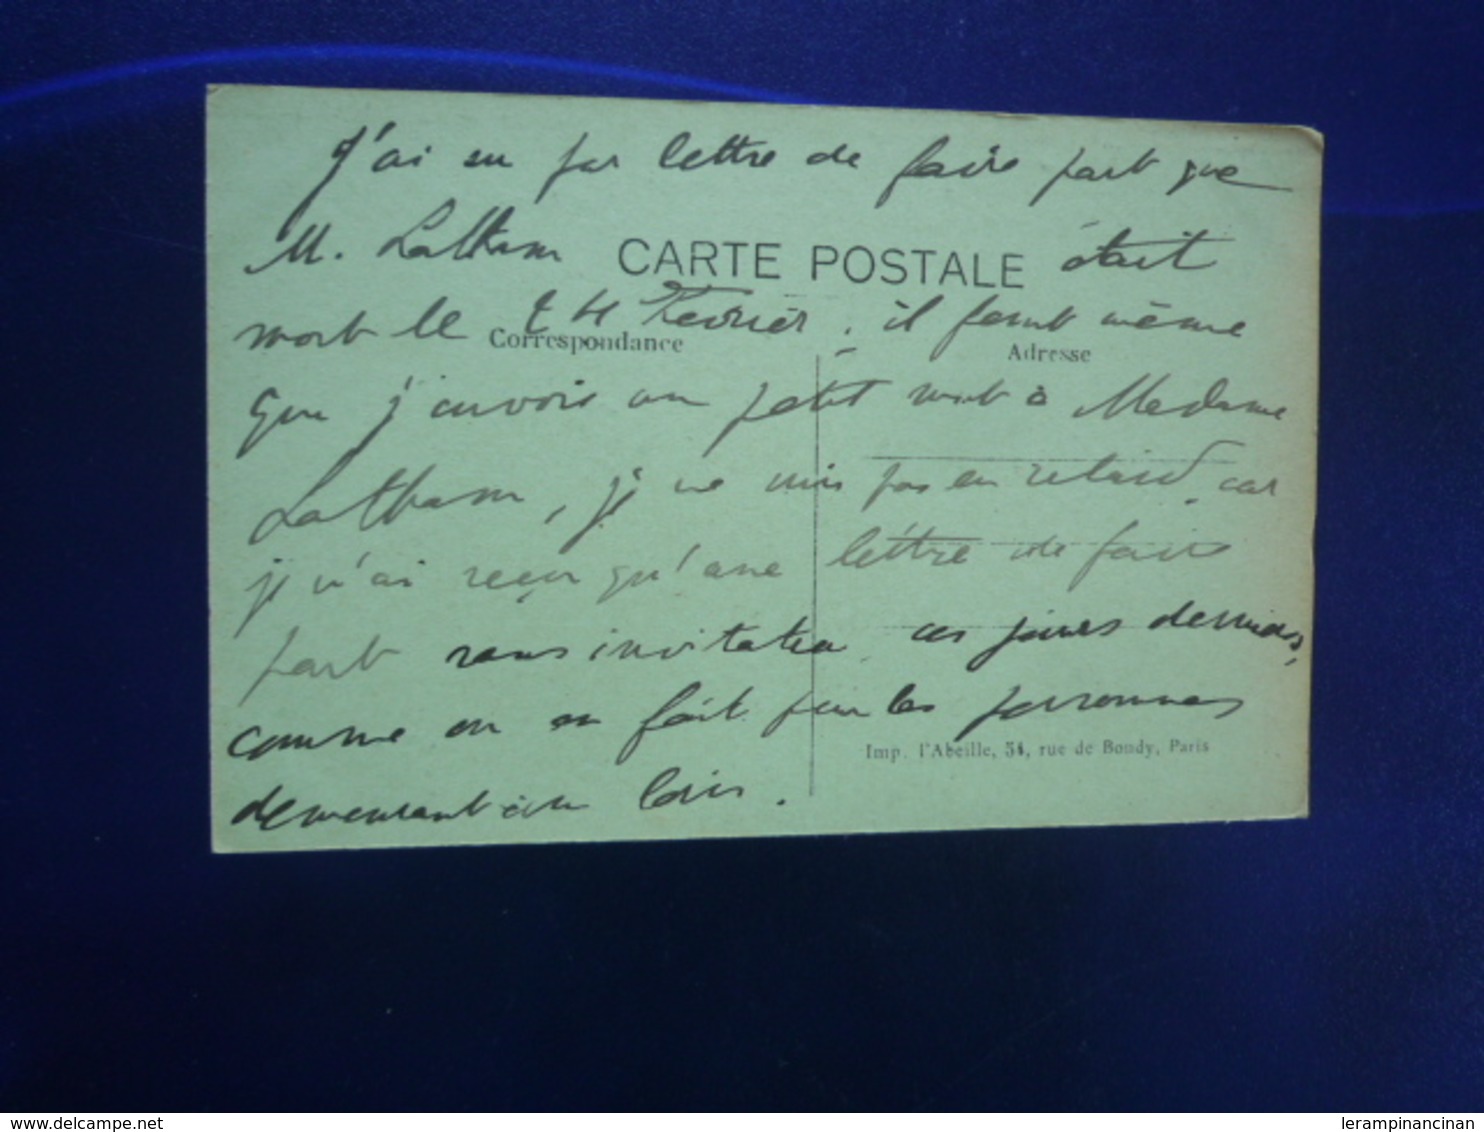 J'ai su par lettre de faire part que
M. Latham CARTE POSTALE était
mort le 24 Fevrier, il faut même
Correspondance
Adresse
que j'envois un petit mot à Madame
Latham, je ne suis pas en retard, car
je n'ai reçu qu'une lettre de faire
part sans invitation ces jours derniers,
comme on en fait pour les personnes
Imp. l'Abeille, 54, rue de Bondy, Paris
demeurant au loin.
delcampe.net
lerampinancinan